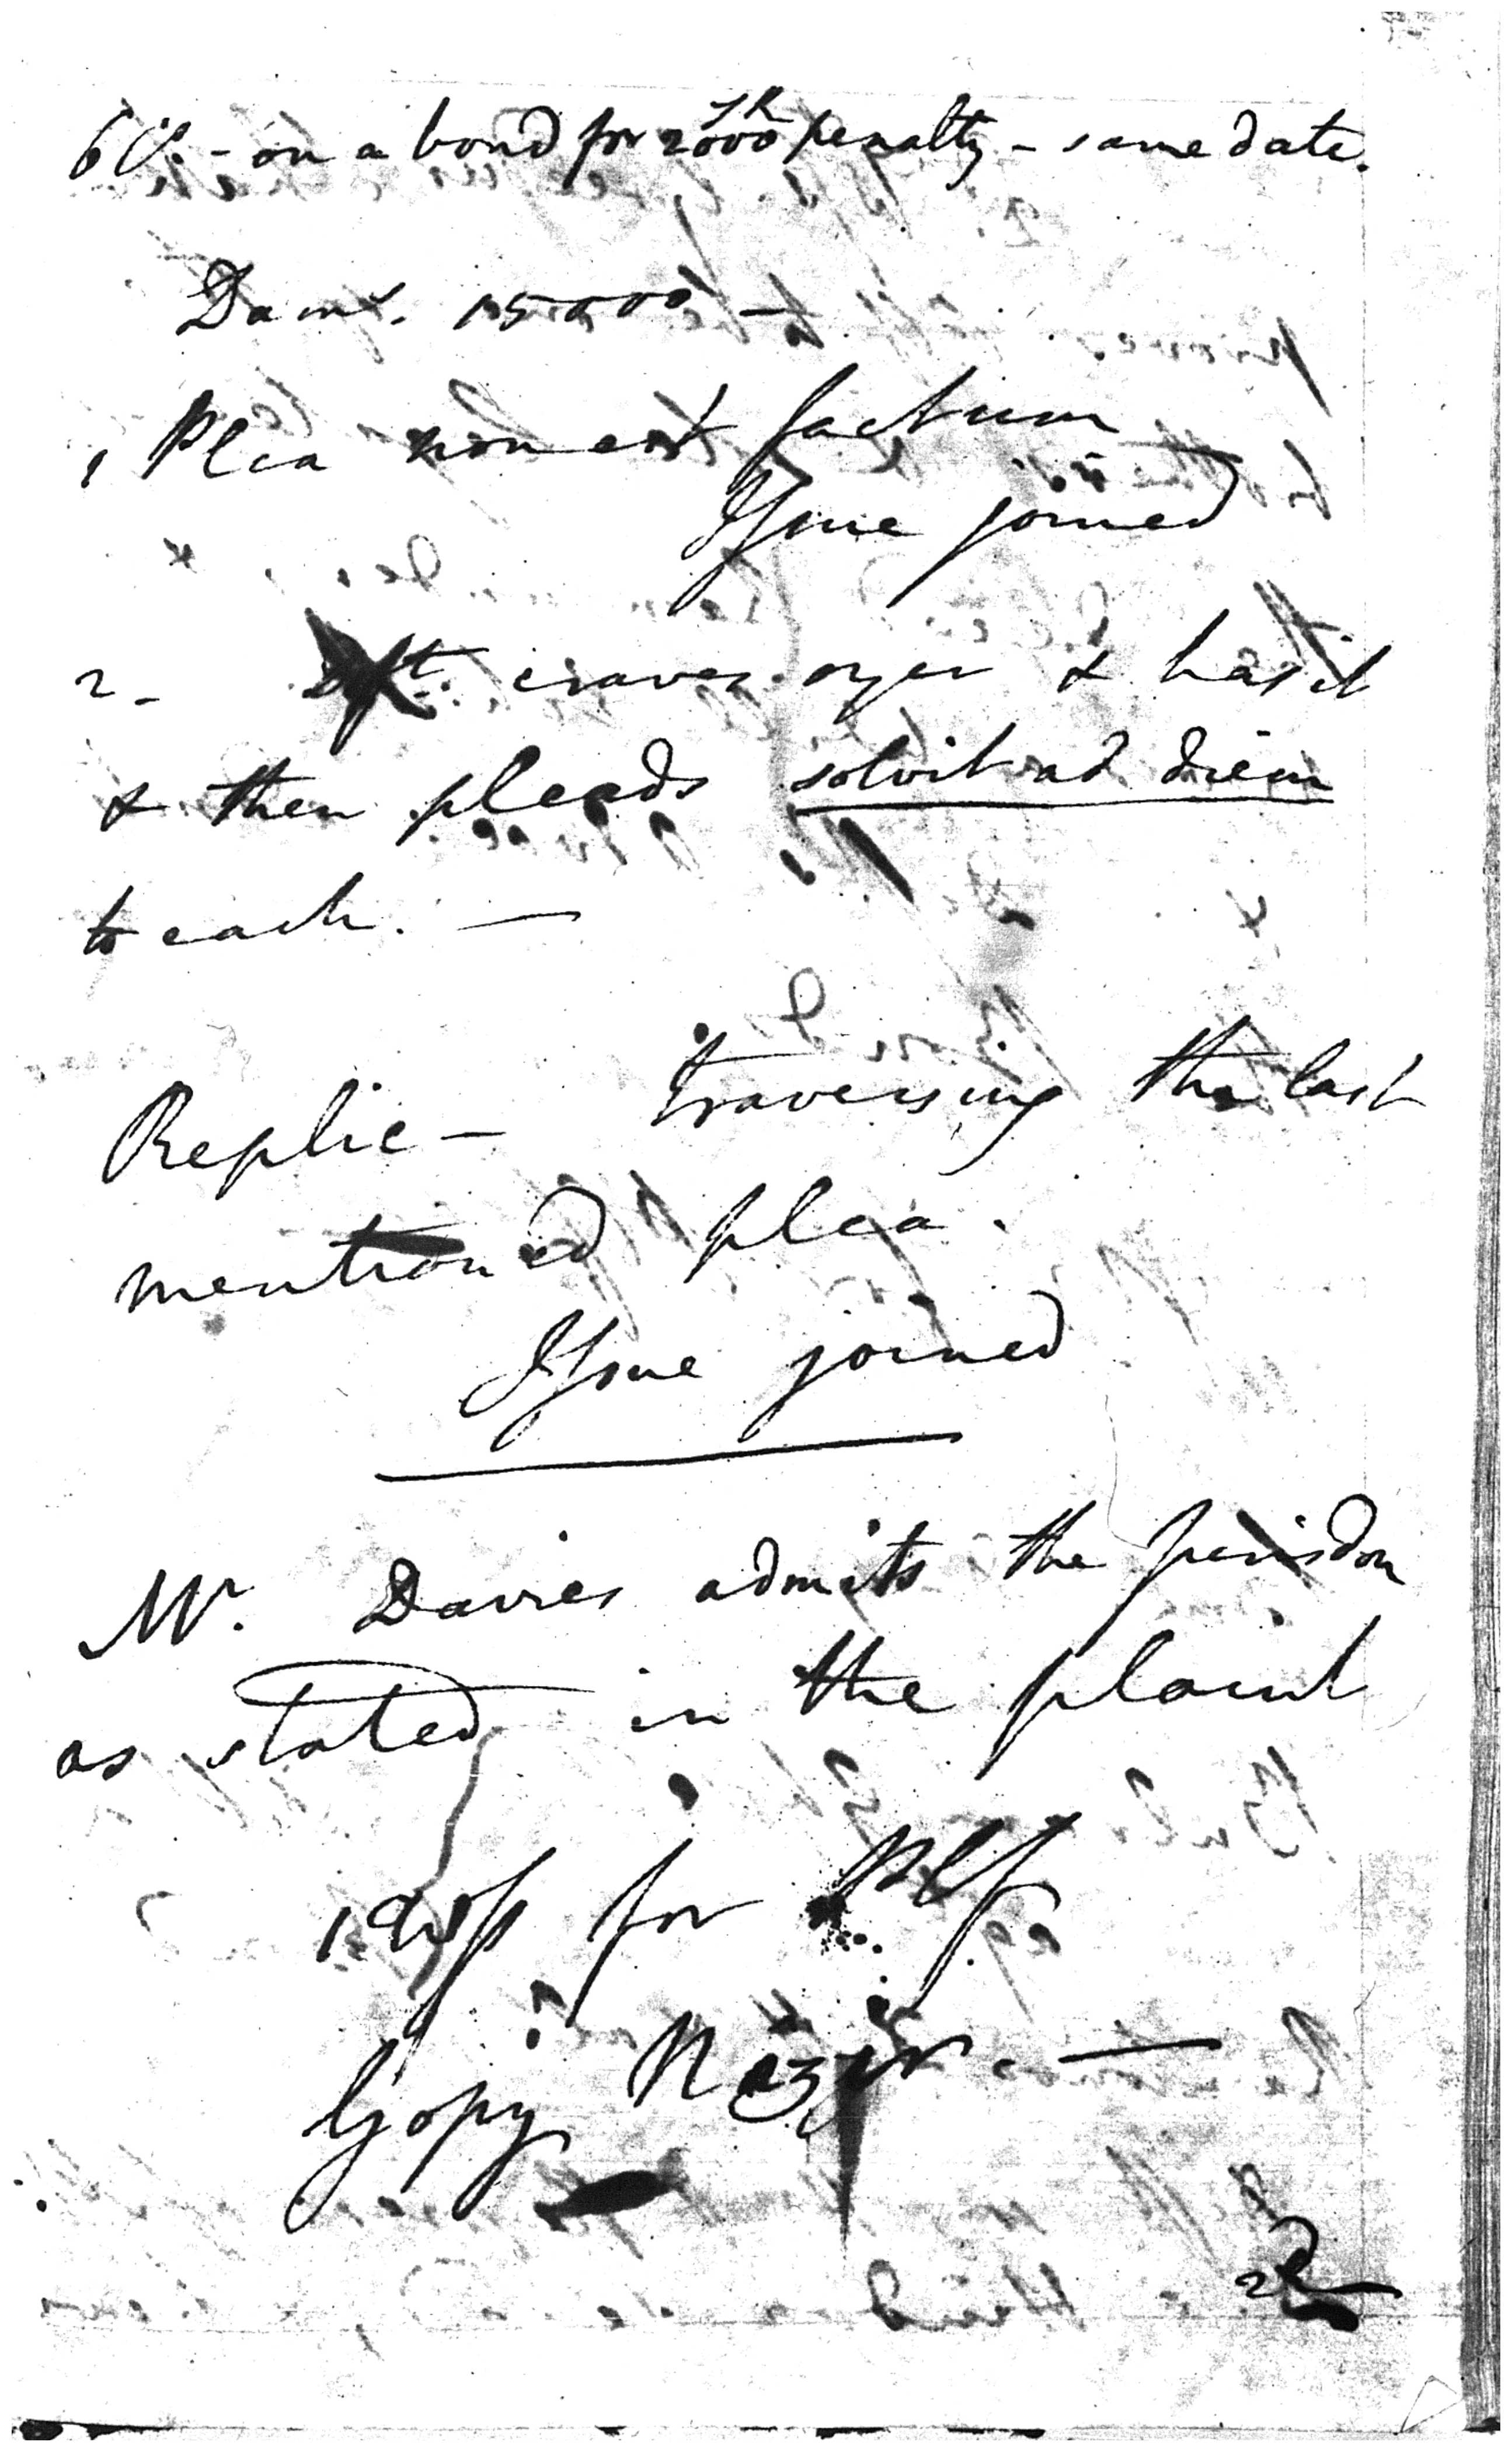 6 Ct. - on a bond for 2000 SR penalty - same date.
Dams. 15000 -
1 Plea non est factum
Issue joined
2 - Dft craves oyer & has it
& then pleads solvit ad diem
to each. -
Replic - traversing the last
mentioned plea.
Issue joined
Mr. Davies admits the jurisdon
as stated in the plaint
1 Wss for Plf
Gopy Nazir. -